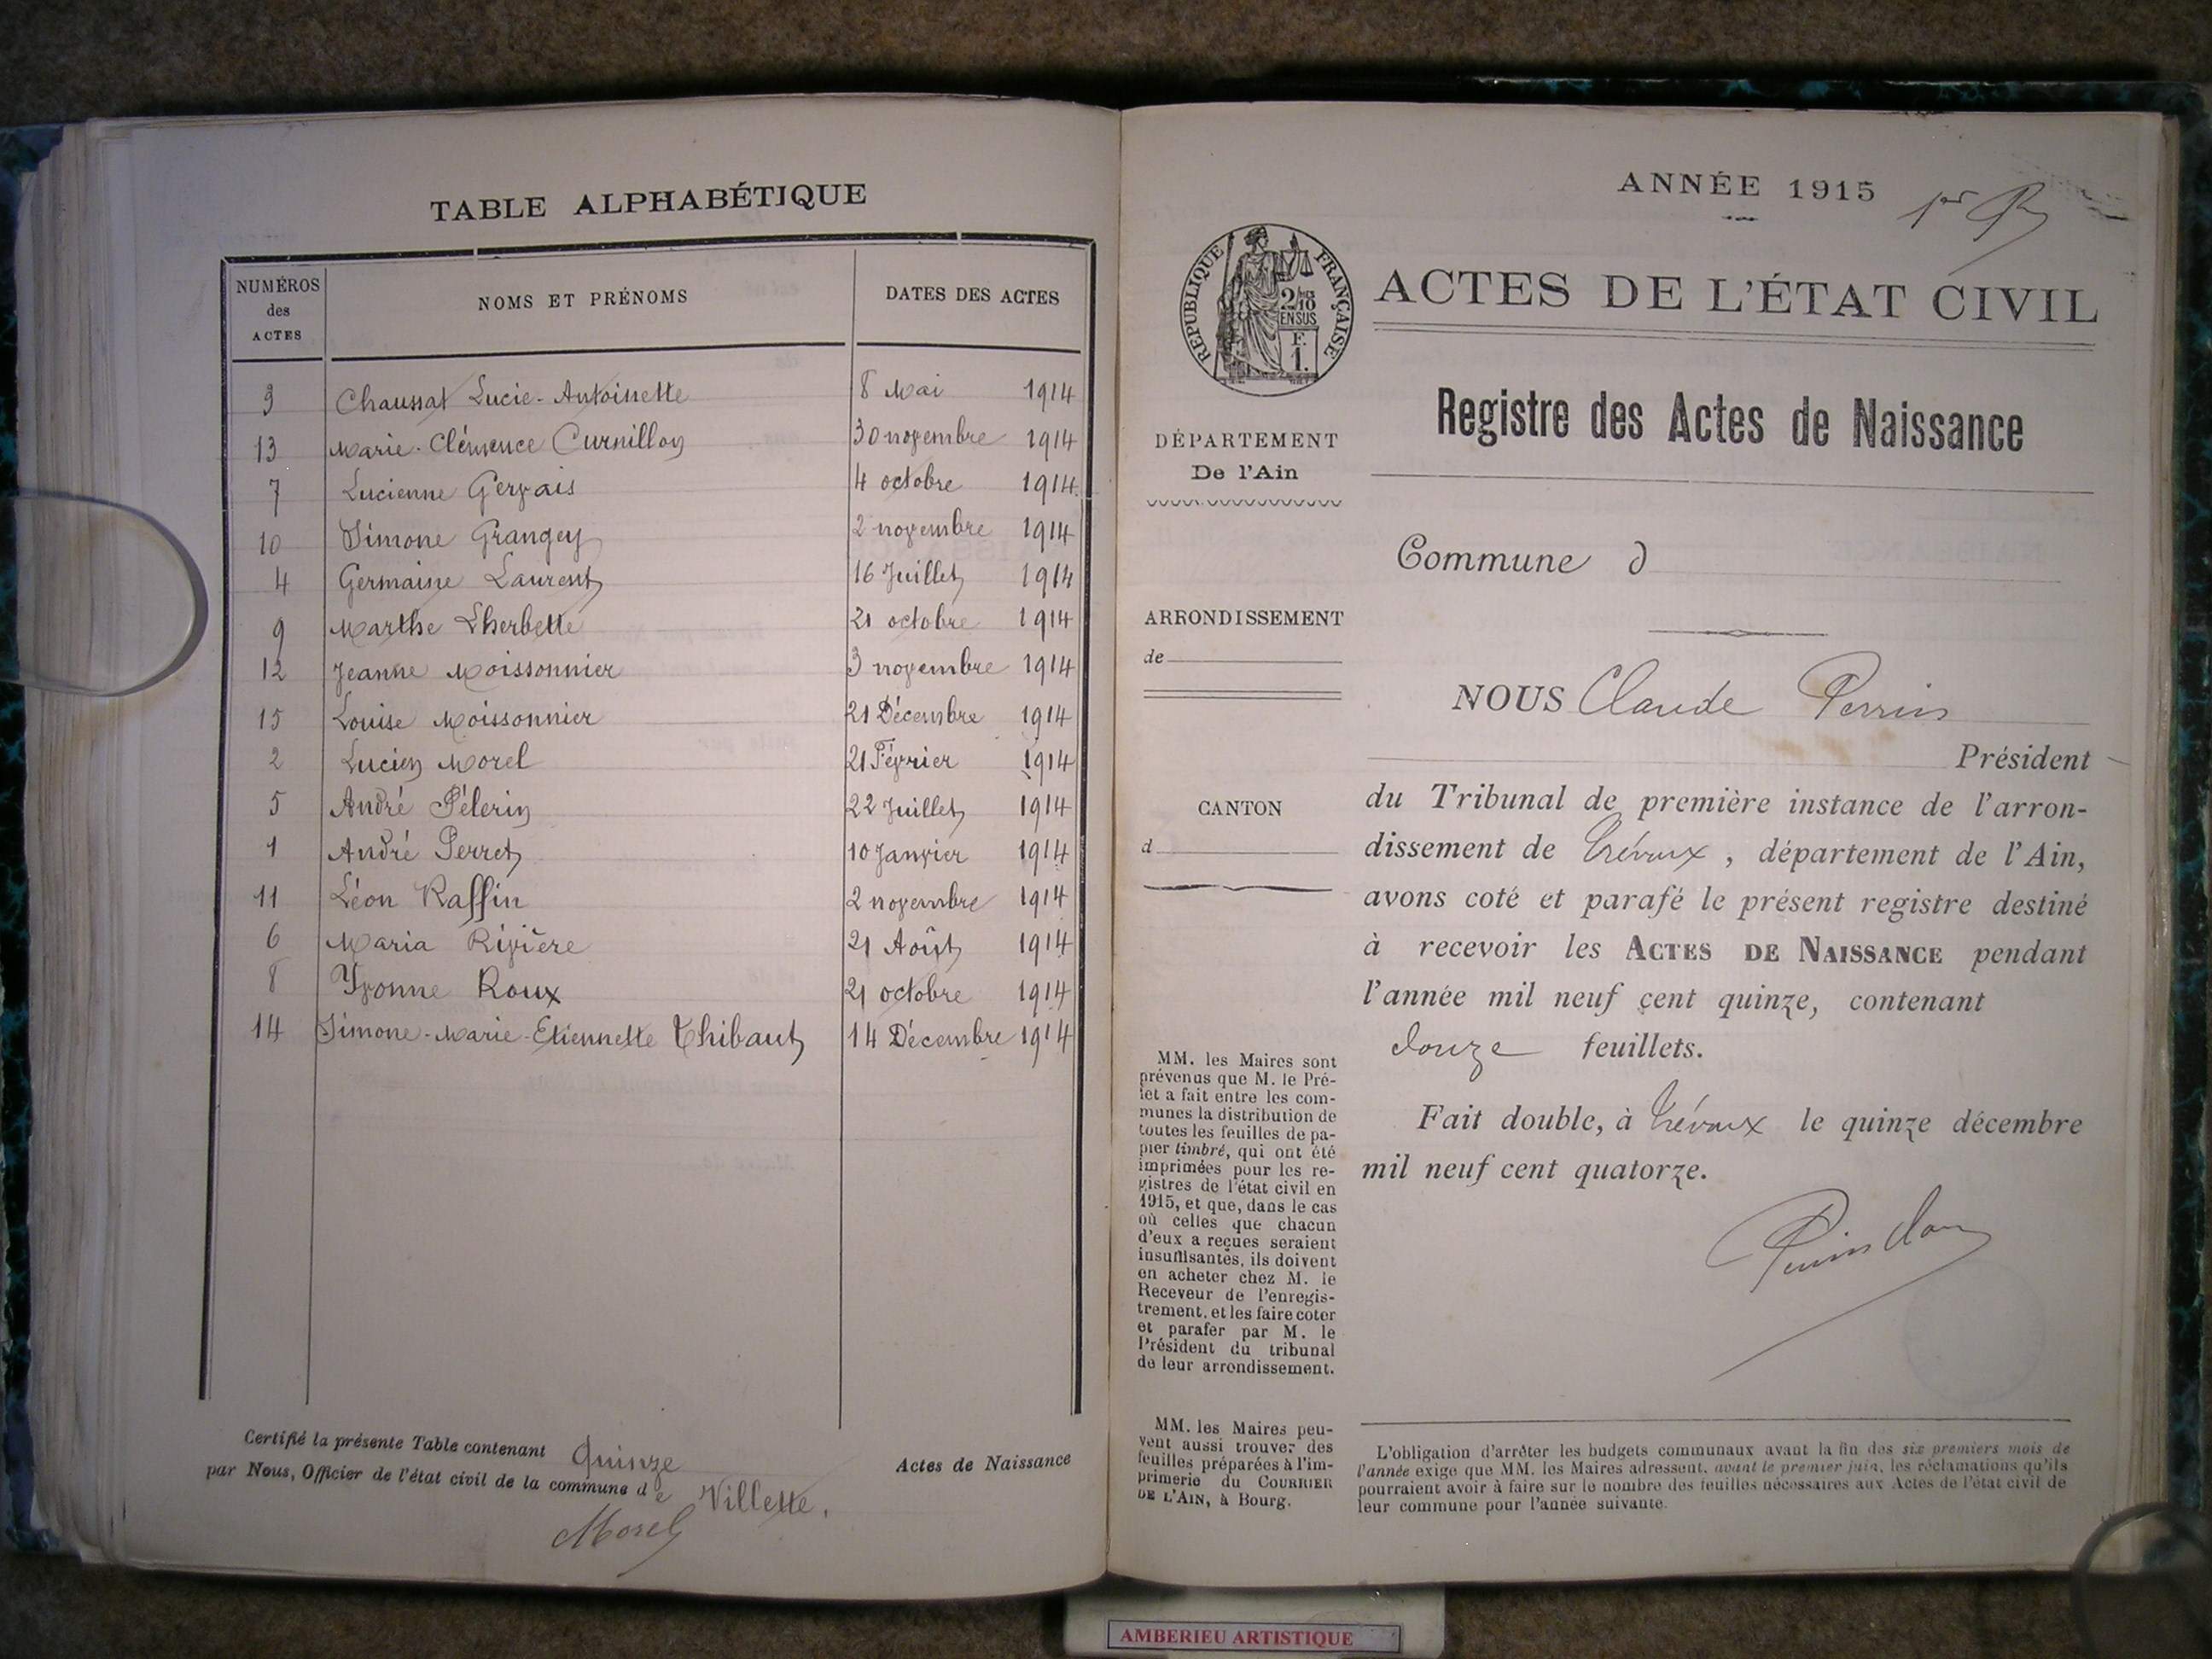 TABLE ALPHABÉTIQUE
NUMÉROS des ACTES
NOMS ET PRÉNOMS
DATES DES ACTES
3 Chaussat Lucie-Antoinette 8 Mai 1914
13 Marie-Clémence Curnillon 30 novembre 1914
7 Lucienne Gervais 4 octobre 1914
10 Simone Grangey 2 novembre 1914
4 Germaine Laurent 16 Juillet 1914
9 Marthe Lherbette 21 octobre 1914
12 Jeanne Moissonnier 3 novembre 1914
15 Louise Moissonnier 21 Décembre 1914
2 Lucien Morel 21 Février 1914
5 André Pélerin 22 Juillet 1914
1 André Perret 10 Janvier 1914
11 Léon Raffin 2 novembre 1914
6 Maria Rivière 21 Août 1914
8 Yvonne Roux 21 octobre 1914
14 Simone-Marie-Etiennette Thibaut 14 Décembre 1914
Certifié la présente Table contenant Quinze Actes de Naissance
par Nous, Officier de l'état civil de la commune de Villette.
Morel
ANNÉE 1915
RÉPUBLIQUE FRANÇAISE
2/10
EN SUS
F.
1.
ACTES DE L'ÉTAT CIVIL
Registre des Actes de Naissance
DÉPARTEMENT
De l'Ain
Commune d
ARRONDISSEMENT
de
CANTON
d
NOUS Claude Perrin
Président
du Tribunal de première instance de l'arron-
dissement de Trévoux, département de l'Ain,
avons coté et parafé le présent registre destiné
à recevoir les ACTES DE NAISSANCE pendant
l'année mil neuf cent quinze, contenant
douze feuillets.
Fait double, à Trévoux le quinze décembre
mil neuf cent quatorze.
MM. les Maires sont
prévenus que M. le Pré-
fet a fait entre les com-
munes la distribution de
toutes les feuilles de pa-
pier timbré, qui ont été
imprimées pour les re-
gistres de l'état civil en
1915, et que, dans le cas
où celles que chacun
d'eux a reçues seraient
insuffisantes, ils doivent
en acheter chez M. le
Receveur de l'enregis-
trement, et les faire coter
et parafer par M. le
Président du tribunal
de leur arrondissement.
MM. les Maires peu-
vent aussi trouver des
feuilles préparées à l'im-
primerie du COURRIER
DE L'AIN, à Bourg.
L'obligation d'arrêter les budgets communaux avant la fin des six premiers mois de
l'année exige que MM. les Maires adressent, avant le premier juin, les réclamations qu'ils
pourraient avoir à faire sur le nombre des feuilles nécessaires aux Actes de l'état civil de
leur commune pour l'année suivante.
AMBERIEU ARTISTIQUE